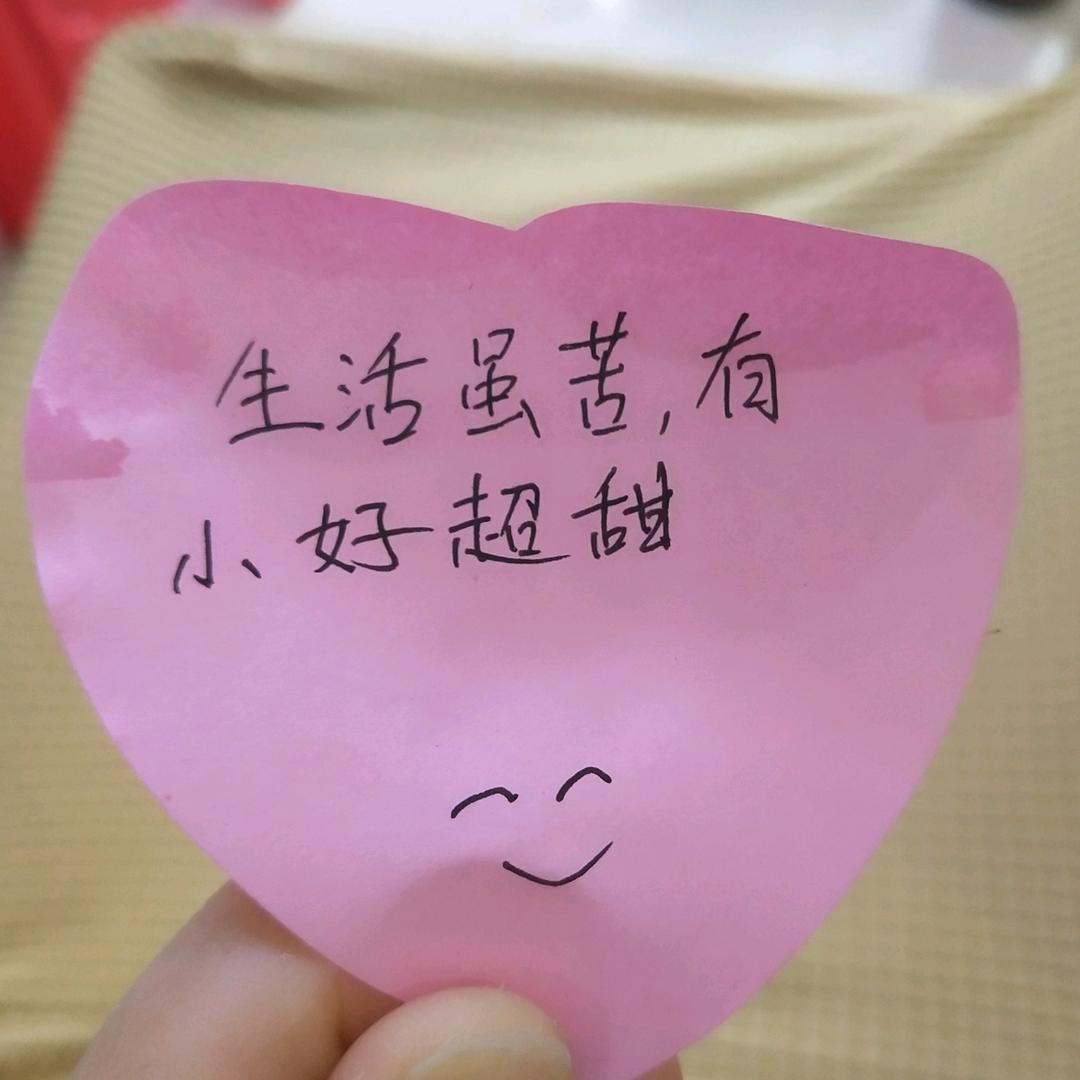 生活虽苦,有
小好超甜